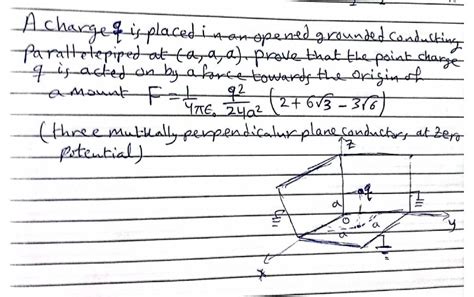 A charge q is placed in an opened grounded conducting
Parallelepiped at (a, a, a). prove that the point charge
q is acted on by a force towards the origin of
amount F = 1/4πε₀ q²/24a² (2 + 6√3 − 3√6)
(three mutually perpendicular plane conductors, at zero
potential)
z
q
a
o
a
a
y
x